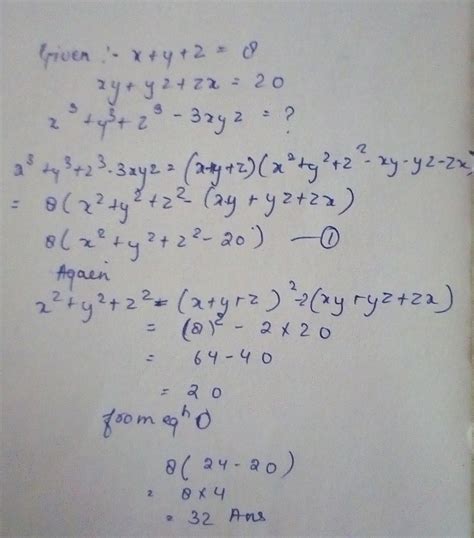 Given :- x+y+z = 8
xy+yz+zx = 20
x³+y³+z³-3xyz = ?
x³+y³+z³-3xyz = (x+y+z)(x²+y²+z²-xy-yz-zx)
= 8(x²+y²+z²-(xy+yz+zx)
8(x²+y²+z²-20) —①
Again
x²+y²+z² = (x+y+z)²-2(xy+yz+zx)
= (8)² - 2×20
= 64-40
= 20
from eqⁿ ①
8(24-20)
= 8×4
= 32 Ans